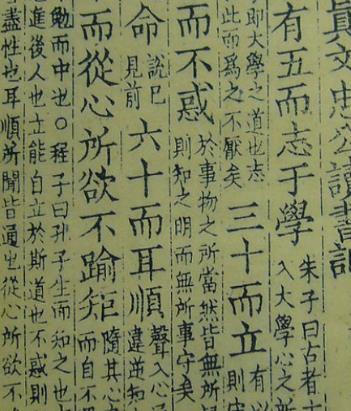 眞文忠公讀書記
有五而志于學
朱子曰古者
入大學心之所
即大學之道也志
此而爲之不厭矣
三十而立
有以
則守
而不惑
於事物之所當然皆無所
則知之明而無所事守矣
命
說已
見前
六十而耳順
聲入心
違逆知
而從心所欲不踰矩
隨其心
而自不
勉而中也○程子曰孔子生而知之也
進後人也立能自立於斯道也不惑則
盡性也耳順所聞皆通也從心所欲不